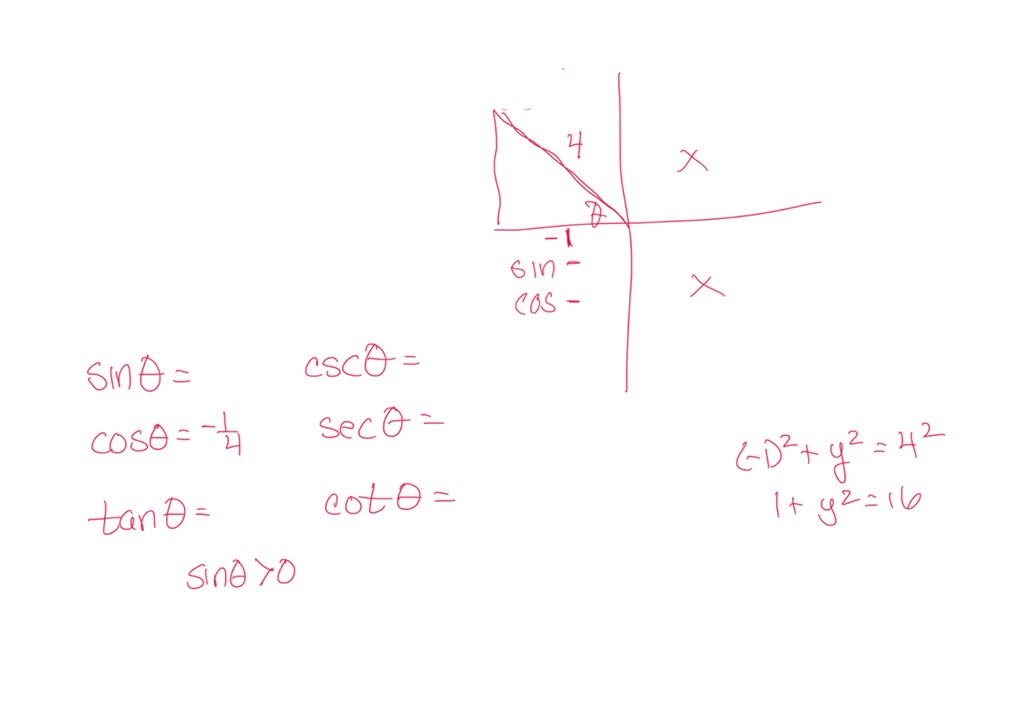 4
x
θ
-1
sin -
cos -
x
sinθ =
cscθ =
cosθ = -1/4
secθ =
tanθ =
cotθ =
sinθ > 0
(-1)² + y² = 4²
1 + y² = 16